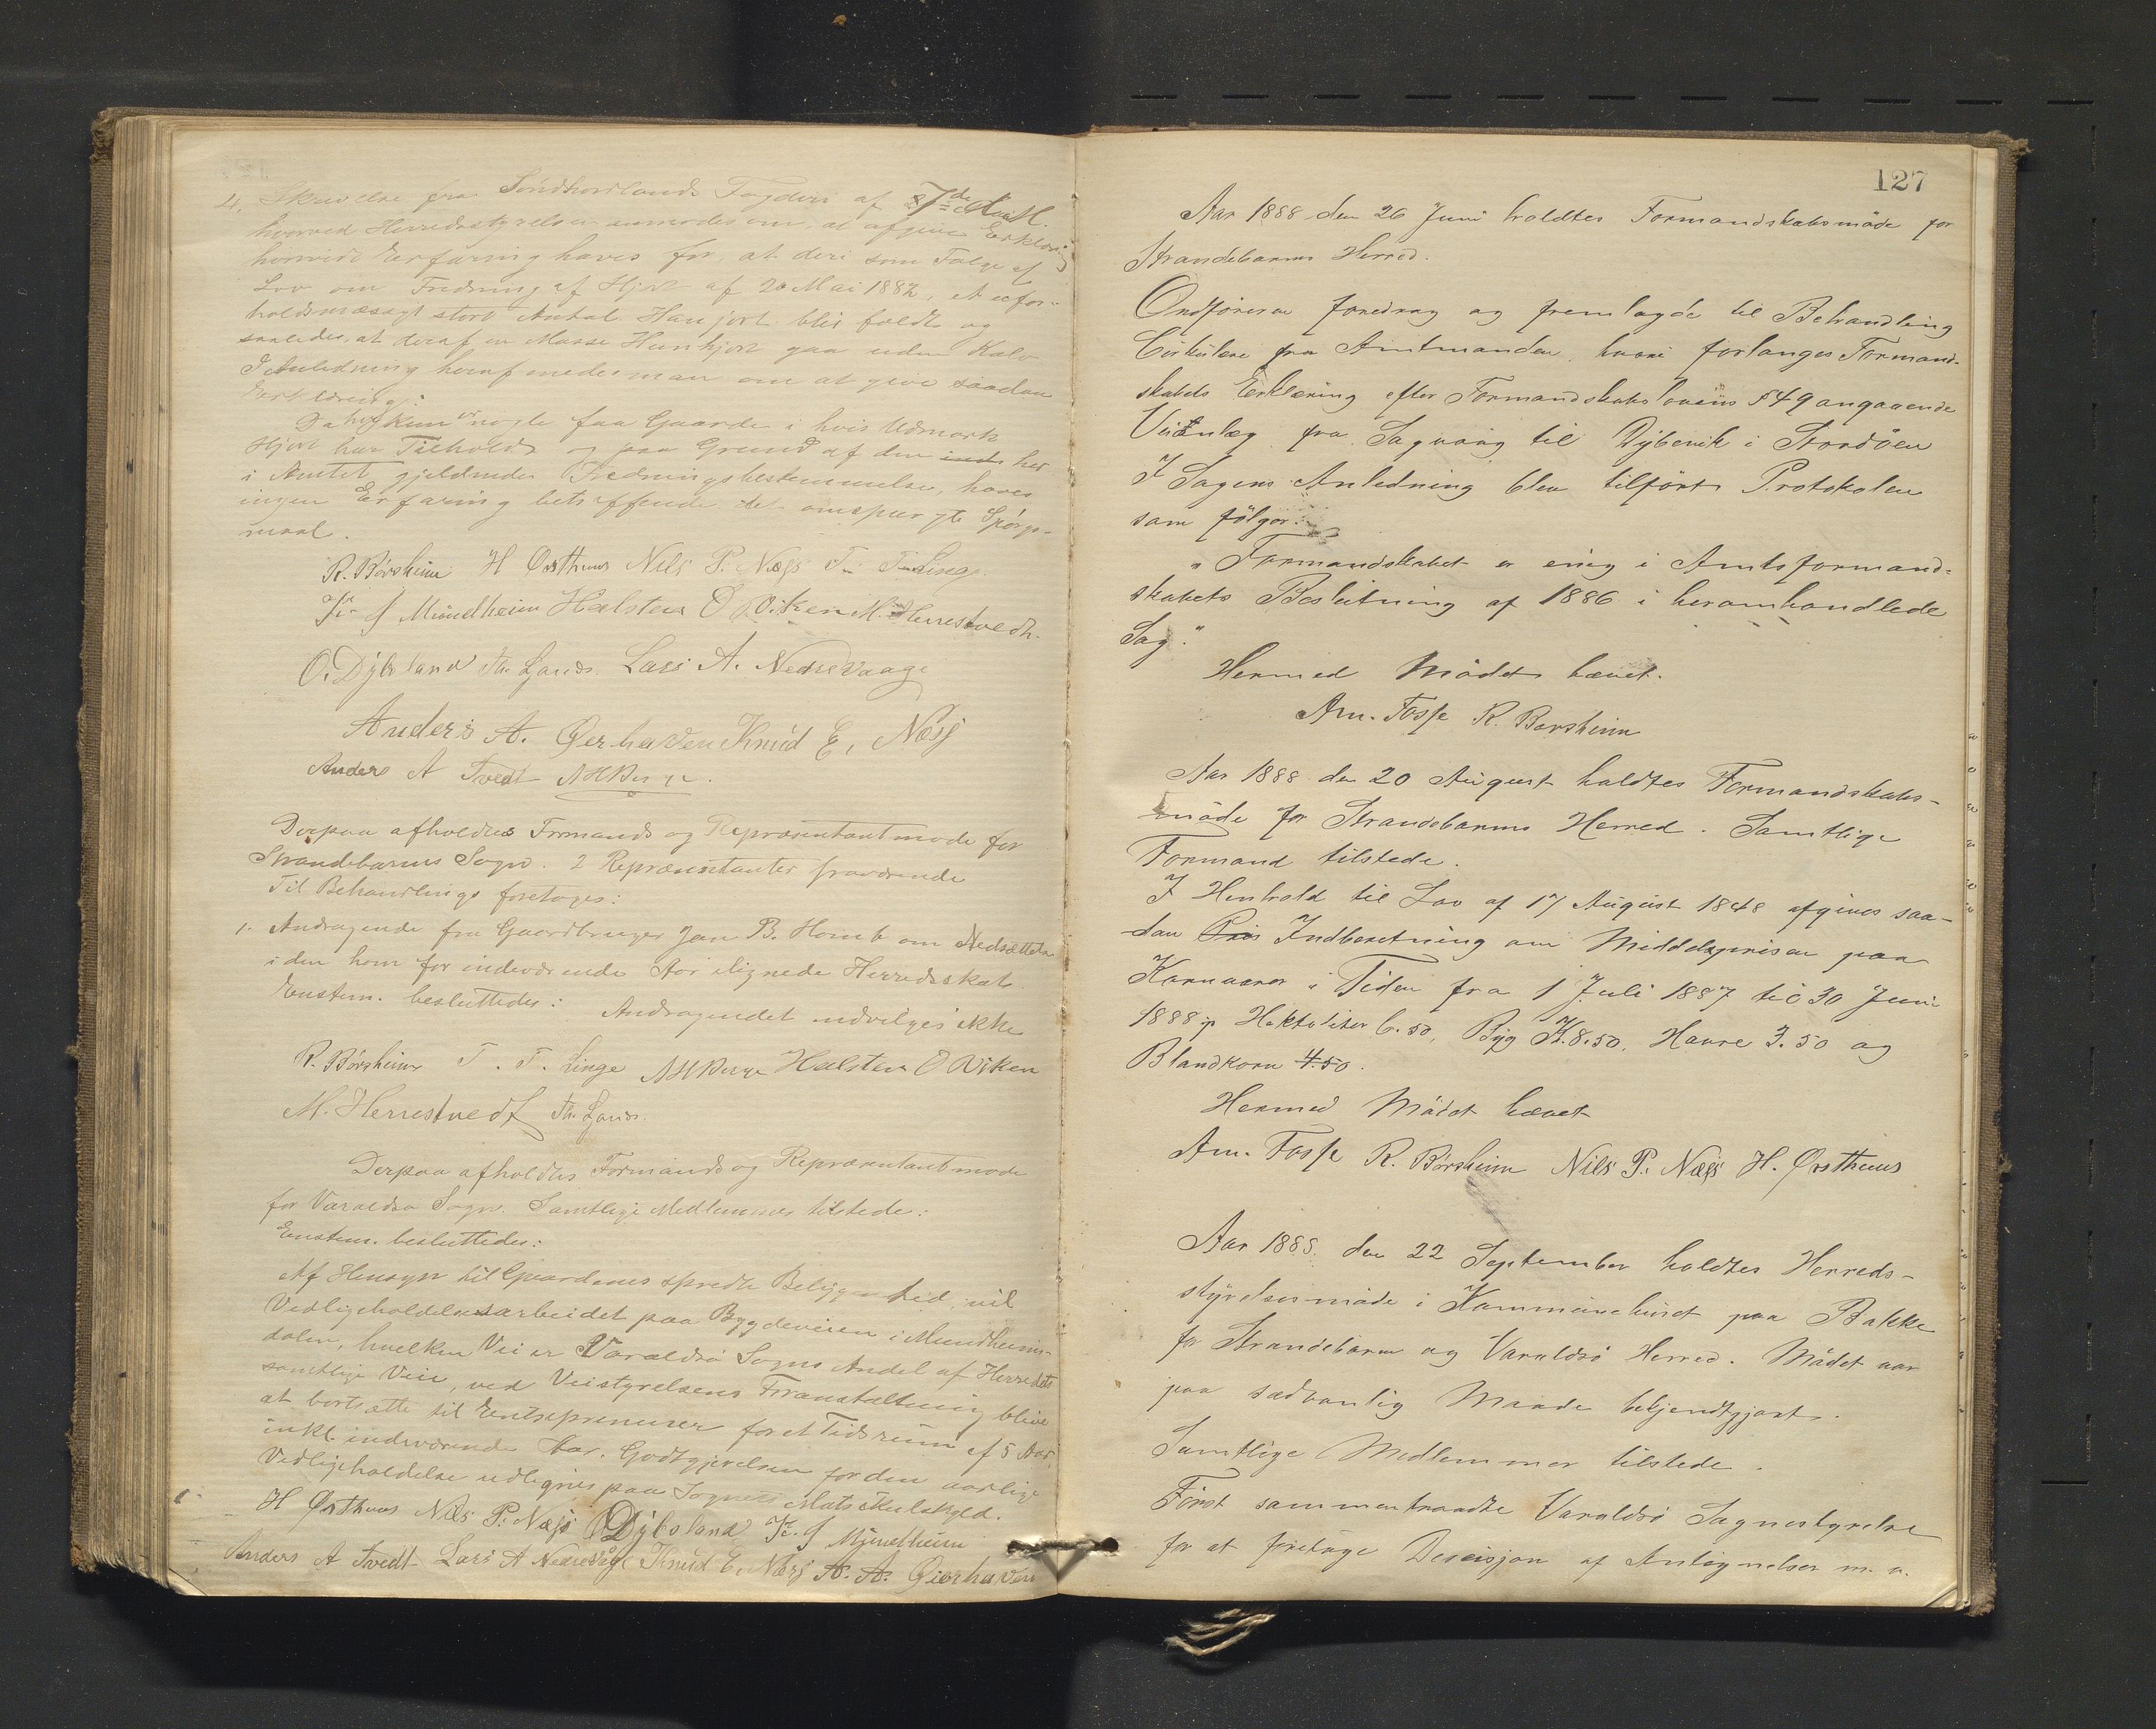 4. Skrivelse fra Søndhordlands Fogderi af
hvorved Herredsstyrelsen anmodes om, at afgive Erklæring
hvorvidt Erfaring haves for, at deri som Følge af
Lov om Fredning af Hjort af 20 Mai 1882, et ufor-
holdsmæssigt stort Antal Hanhjort blir fældt og
saaledes, at deraf en Masse Hunhjort gaa uden Kalv
I Anledning heraf enedes man om at give saadan
Erklæring:
Da her kun er nogle faa Gaarde i hvis Udmark
Hjort har Tilhold og paa Grund af den her
i Amtet gjeldende Fredningsbestemmelse, haves
ingen Erfaring betreffende det omspurgte Spørgs-
maal.
R. Børsheim H Østhuus Nils P. Næss T. T. Linge
J Mundheim Halsten O Viken M. Herrestvedt.
O. Dybsland Th. Sjands. Lars A. Nedrevaage
Anders A. Øierhavn Knud E. Næss
Anders A Tvedt AHBerge.
Derpaa afholdtes Formands og Repræsentantmøde for
Strandebarms Sogn. 2 Repræsentanter fraværende
Til Behandling foretoges:
1. Andragende fra Gaardbruger Jan B. Homb om Nedsættelse
i den ham for indeværende Aar ilignede Herredsskat.
Enstem. besluttedes: Andragendet indvilges ikke
R. Børsheim T. T. Linge AHBerge Halsten O Viken
M. Herrestvedt Th. Sjands.
Derpaa afholdtes Formands og Repræsentantmøde
for Varaldsø Sogn. Samtlige Medlemmer tilstede:
Enstem. besluttedes:
Af Hensyn til Gaardenes spredte Beliggenhed, vil
Vedligeholdelsesarbeidet paa Bygdeveien i Mundheims-
dalen, hvilken Vei er Varaldsø Sogns Andel af Herredets
samtlige Veie, ved Veistyrelsens Foranstaltning blive
at bortsætte til Entreprenører for et Tidsrum af 5 Aar,
inkl. indeværende Aar. Godtgjørelsen for den aarlige
Vedligeholdelse udlignes paa Sognets Matrikulskyld.
H Østhuus Nils P. Næss O Dybsland J Mundheim
Anders A Tvedt Lars A Nedrevåge Knud E. Næss A. A. Øierhavn
127
Aar 1888 den 26 Juni holdtes Formandskabsmøde for
Strandebarms Herred.
Ordføreren foredrog og fremlagde til Behandling
Cirkulære fra Amtmanden, hvori forlanges Formand-
skabets Erklæring efter Formandskabslovens § 49 angaaende
Veianlæg fra Sagvaag til Dybevik i Stordøen
I Sagens Anledning blev tilført Protokolen
som følger:
"Formandskabet er enig i Amtsformand-
skabets Beslutning af 1886 i heromhandlede
Sag."
Hermed Mødet hævet.
Am. Fosse R. Børsheim
Aar 1888 den 20 August holdtes Formandskabs-
møde for Strandebarms Herred. Samtlige
Formænd tilstede.
I Henhold til Lov af 17 August 1848 afgives saa-
dan Pris Indberetning om Middelprisen paa
Kornvarer i Tiden fra 1 Juli 1887 til 30 Juni
1888 p Hektoliter 6.50, Byg K. 8.50, Havre 3.50 og
Blandkorn 4.50.
Hermed Mødet hævet
Am. Fosse R. Børsheim Nils P. Næss H. Østhuus
Aar 1888. den 22 September holdtes Herreds-
styrelsesmøde i Kommunehuset paa Bakke
for Strandebarm og Varaldsø Herred. Mødet var
paa sædvanlig Maade bekjendtgjort.
Samtlige Medlemmer tilstede.
Først sammentraadte Varaldsø Sognestyrelse
for at foretage Desisjon af Antegnelser m. v.